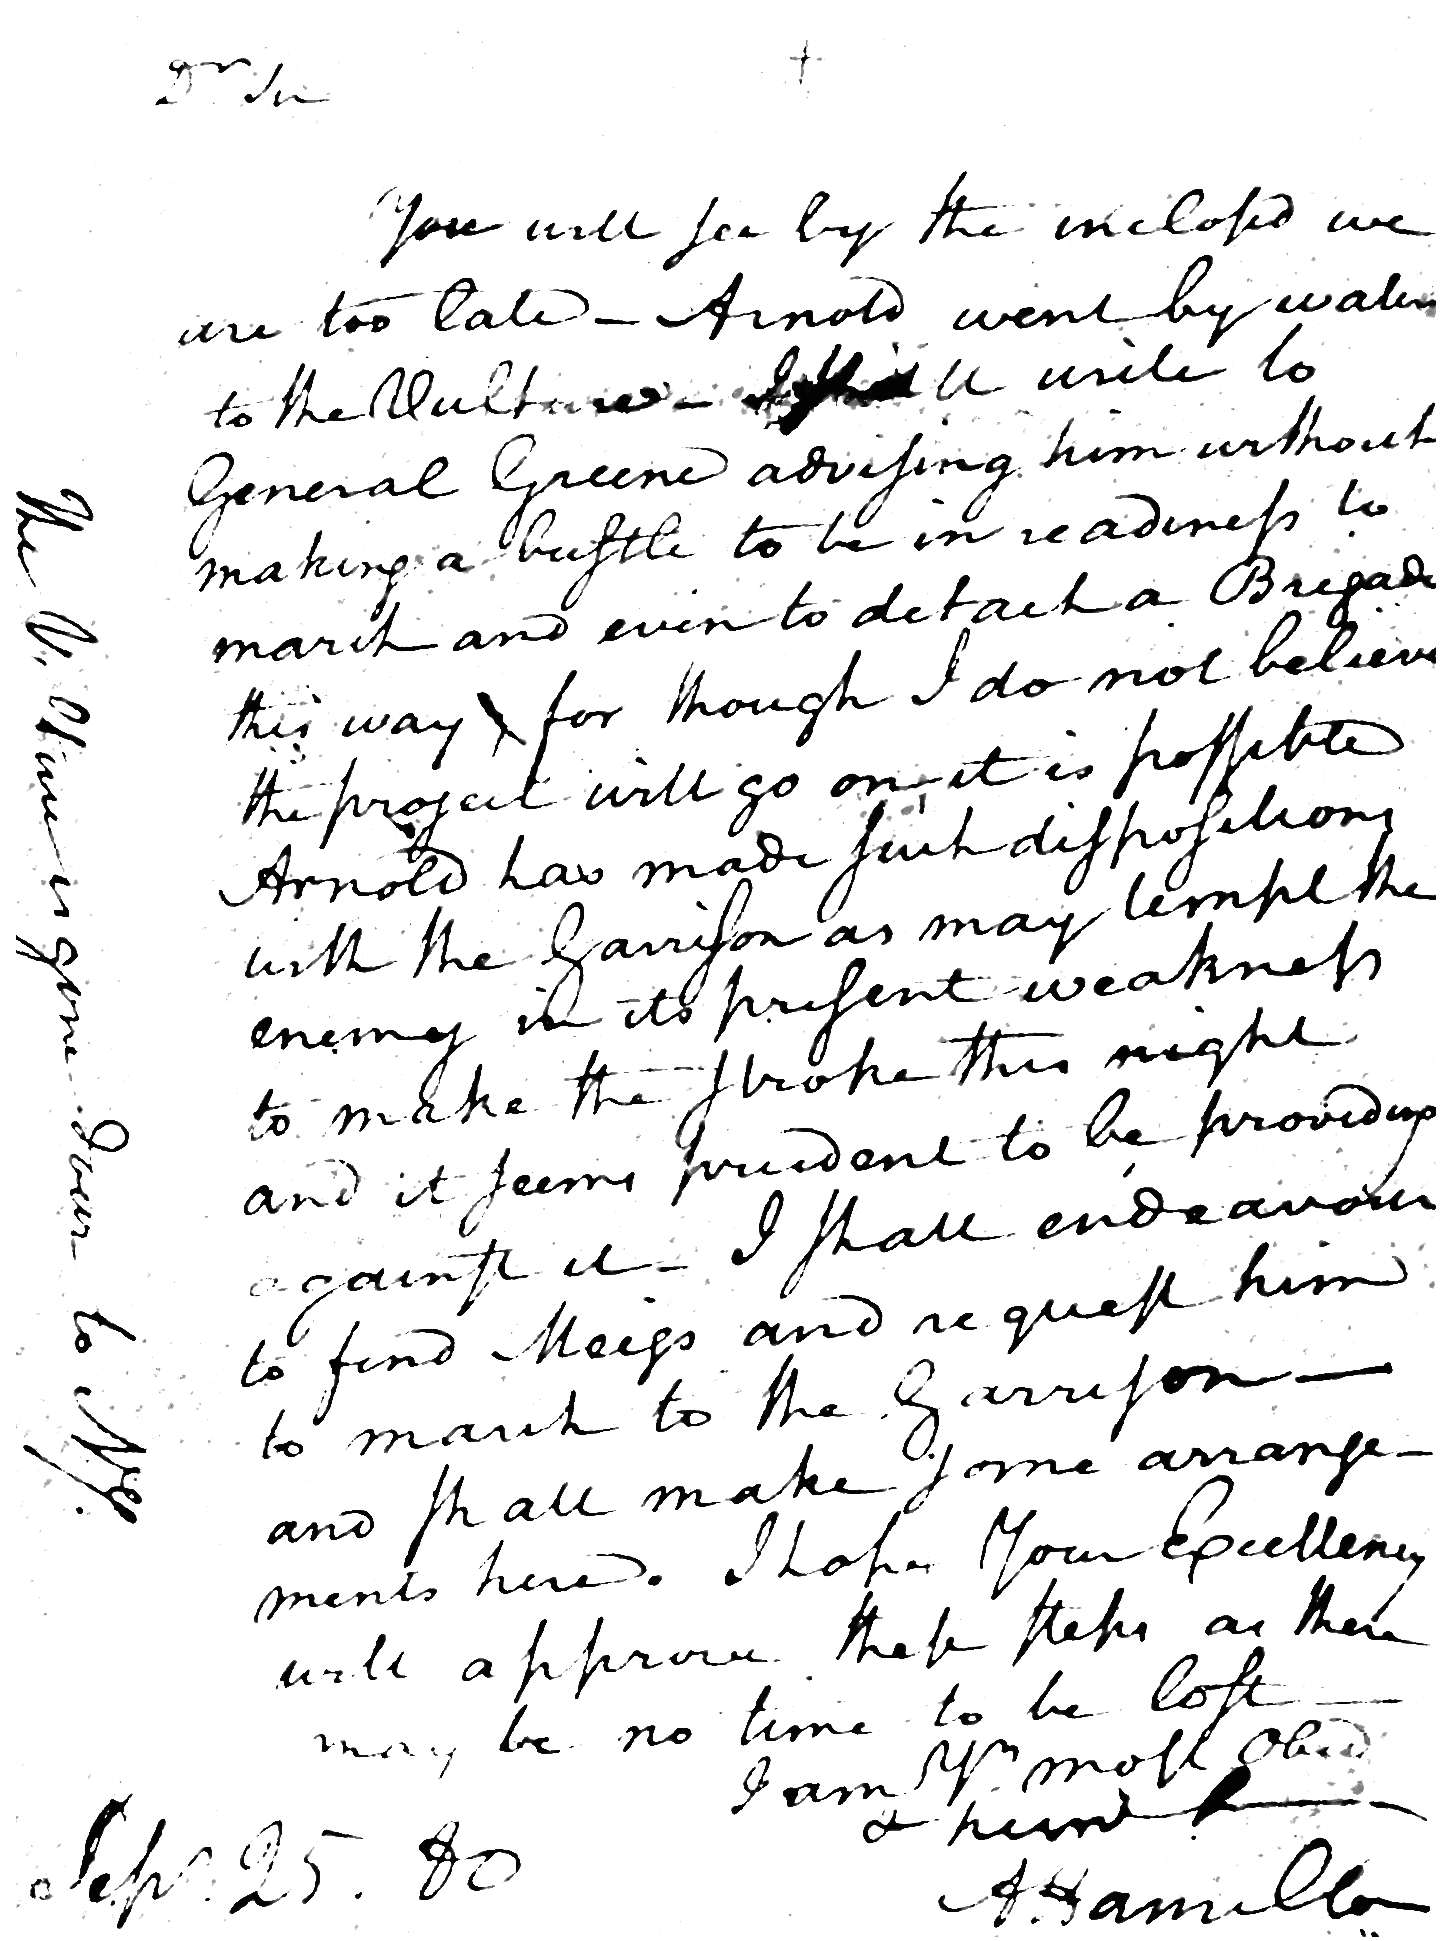 Dr Sir
You will see by the inclosed we
are too late — Arnold went by water
to the Vulture — I will write to
General Greene advising him without
making a bustle to be in readiness to
march and even to detach a Brigade
this way for though I do not believe
the project will go on it is possible
Arnold has made such dispositions
with the Garrison as may tempt the
enemy in its present weakness
to make the stroke this night
and it seems prudent to be providing
against it — I shall endeavour
to find Meigs and request him
to march to the Garrison —
and shall make some arrange-
ments here. I hope Your Excellency
will approve these steps as there
may be no time to be lost —
I am Yr most Obed
& hum
A. Hamilton
Sepr. 25. 80
The V. is gone down to N Y.